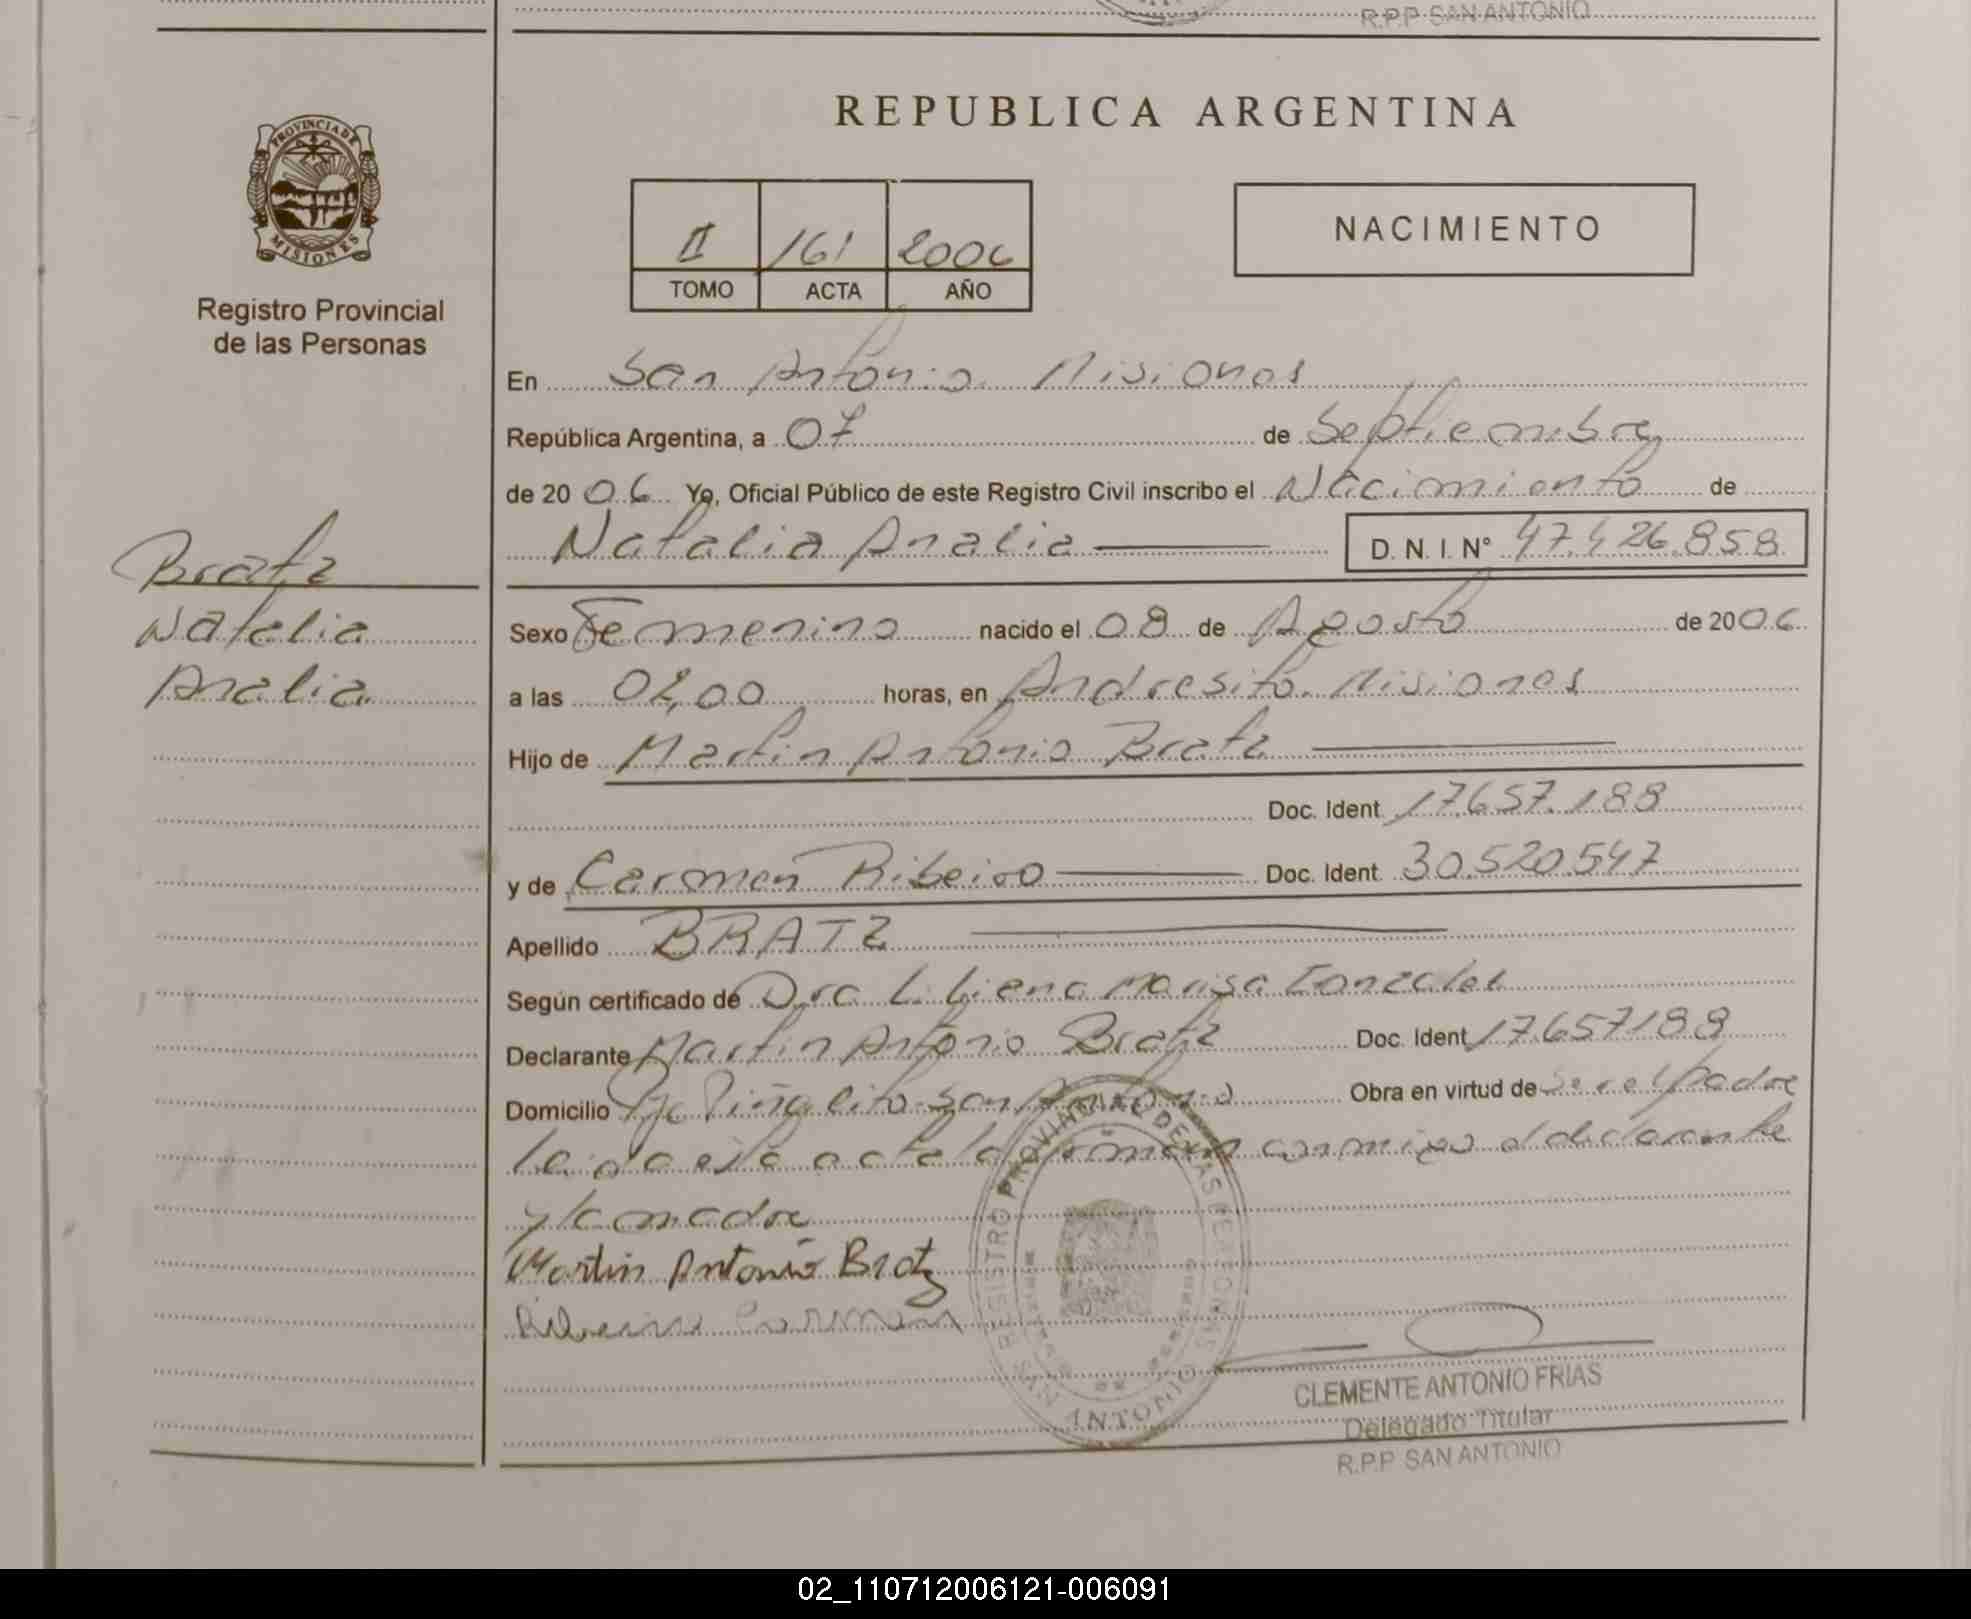 R.P.P. SAN ANTONIO
PROVINCIA DE
MISIONES
Registro Provincial
de las Personas
REPUBLICA ARGENTINA
II 161 2006
TOMO ACTA AÑO
NACIMIENTO
En San Antonio Misiones
República Argentina, a 07 de Septiembre
de 2006 Yo, Oficial Público de este Registro Civil inscribo el Nacimiento de
Natalia Analia D. N. I. N° 47.426.858
Bratz
Natalia
Analia
Sexo Femenino nacido el 08 de Agosto de 2006
a las 02,00 horas, en Andresito. Misiones
Hijo de Martin Antonio Bratz
Doc. Ident. 17.657.188
y de Carmen Ribeiro Doc. Ident. 30.520.547
Apellido BRATZ
Según certificado de Dra Liliana Marisa Gonzalez
Declarante Martin Antonio Bratz Doc. Ident. 17.657188
Domicilio Pje Piñalito San Antonio Obra en virtud de Ser el padre
Leida esta acta la firman conmigo el declarante
y la madre
Martin Antonio Bratz
Ribeiro Carmen
REGISTRO PROVINCIAL DE LAS PERSONAS
SAN ANTONIO
CLEMENTE ANTONIO FRIAS
Delegado Titular
R.P.P SAN ANTONIO
02_110712006121-006091